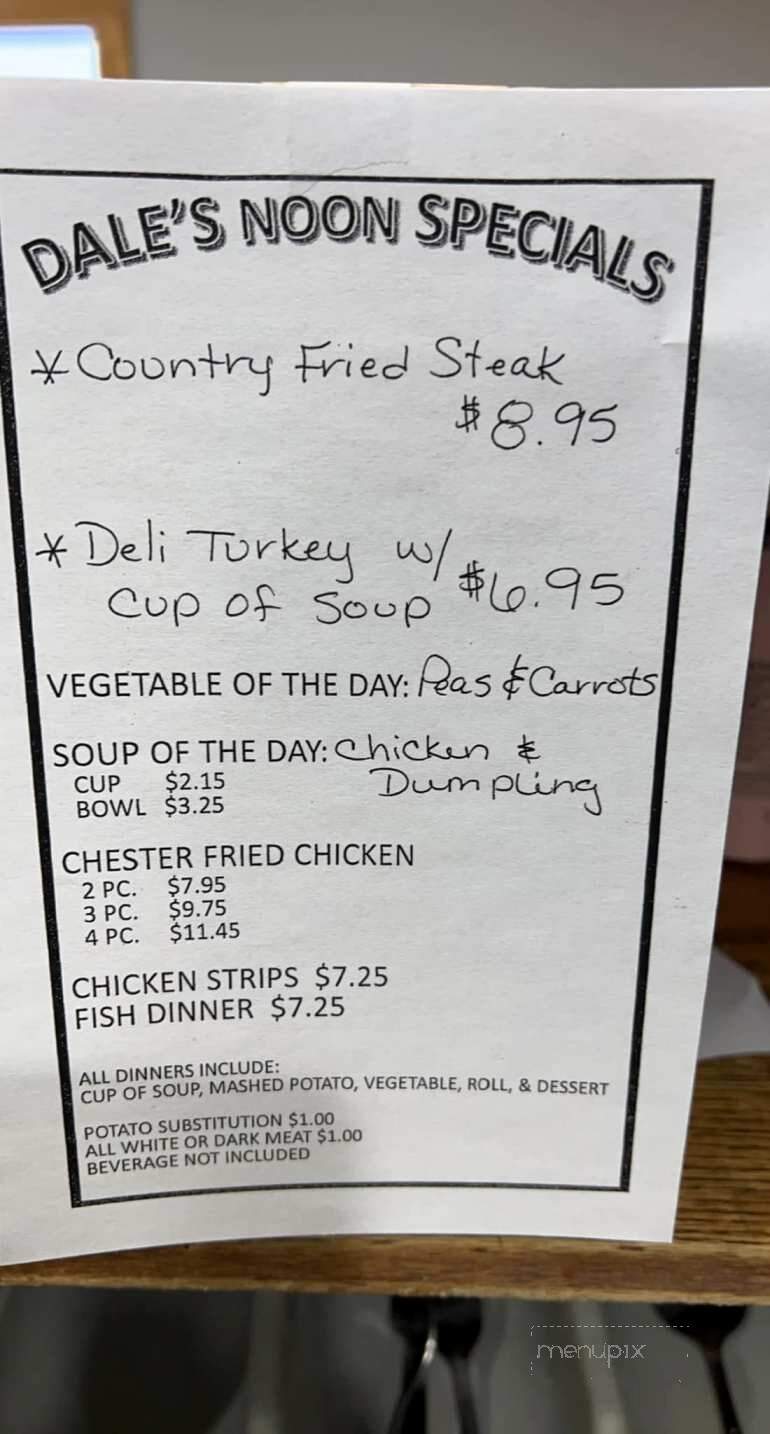 DALE'S NOON SPECIALS
* Country Fried Steak
$8.95
* Deli Turkey w/
Cup of Soup $6.95
VEGETABLE OF THE DAY: Peas & Carrots
SOUP OF THE DAY: Chicken &
Dumpling
CUP $2.15
BOWL $3.25
CHESTER FRIED CHICKEN
2 PC. $7.95
3 PC. $9.75
4 PC. $11.45
CHICKEN STRIPS $7.25
FISH DINNER $7.25
ALL DINNERS INCLUDE:
CUP OF SOUP, MASHED POTATO, VEGETABLE, ROLL, & DESSERT
POTATO SUBSTITUTION $1.00
ALL WHITE OR DARK MEAT $1.00
BEVERAGE NOT INCLUDED
menupix